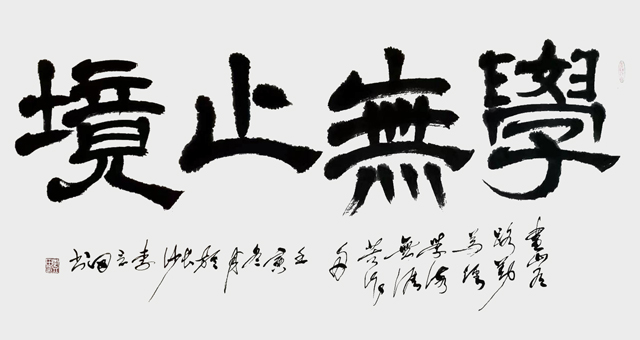 學無止境
書山有
路勤
為徑
學海
無涯
苦作
舟
壬寅冬月於长沙李立书